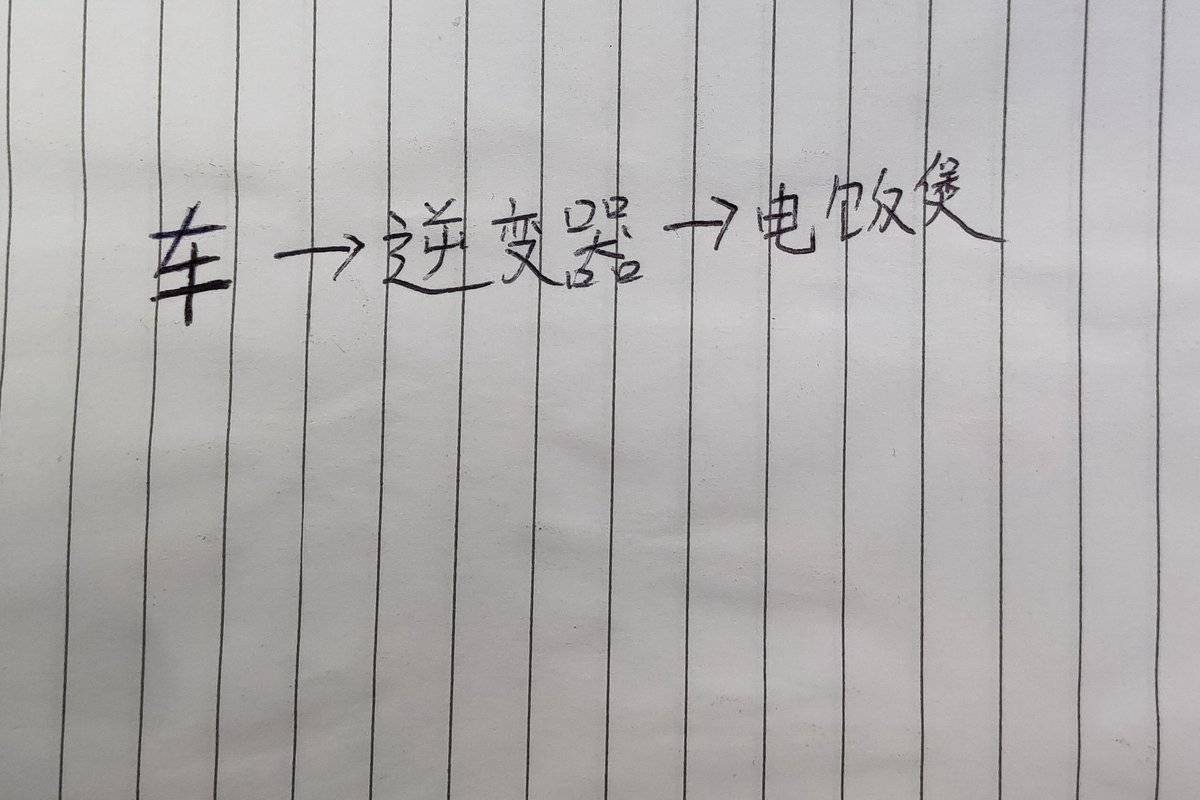 车→逆变器→电饭煲